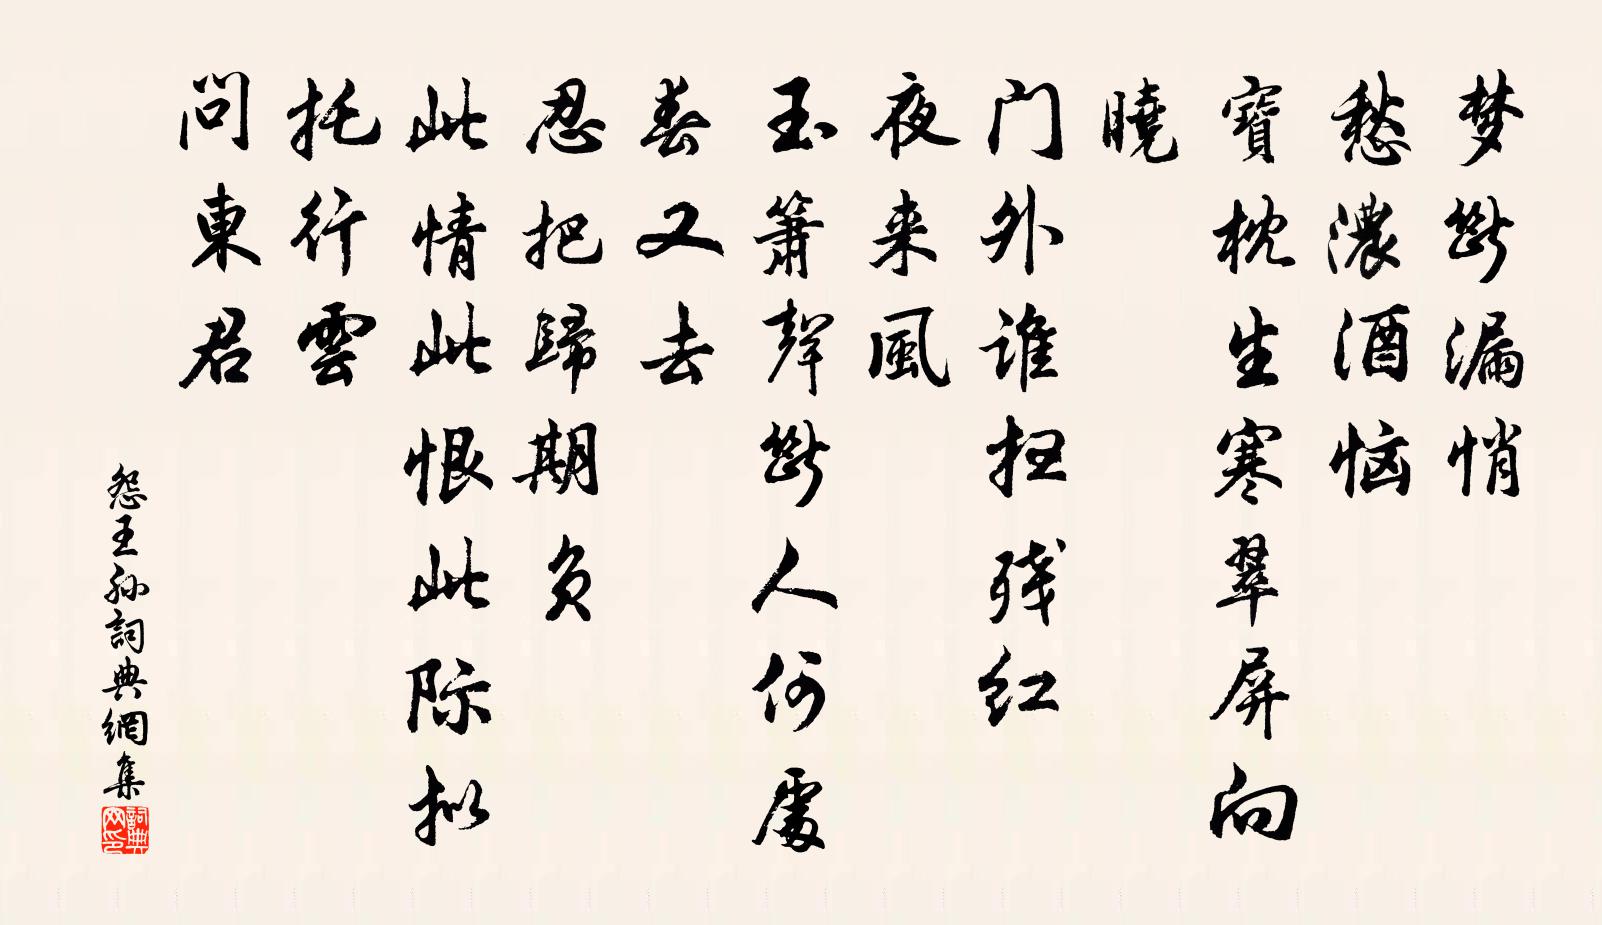 梦斷漏悄
愁濃酒恼
寶枕生寒翠屏向
曉
门外谁扫残红
夜来風
玉簫聲斷人何處
春又去
忍把歸期负
此情此恨此际拟
托行雲
問東君
怨王孙詞典網集
詞典网印